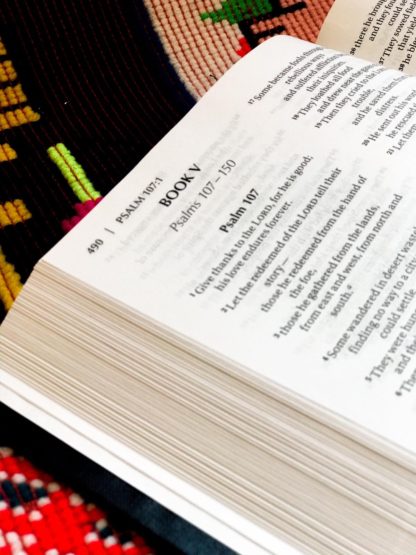 490 | PSALM 107:1
BOOK V
Psalms 107–150
Psalm 107
1 Give thanks to the LORD, for he is good;
his love endures forever.
2 Let the redeemed of the LORD tell their
story—
those he redeemed from the hand of
the foe,
3 those he gathered from the lands,
from east and west, from north and
south.
4 Some wandered in desert
finding no way to a city
could settle.
5 They were
and their
6
17 Some became fools through
rebellious ways
and suffered
their iniquities.
18 They loathed all food
and drew near the
19 Then they cried to the
trouble,
and he saved them
distress.
20 He sent out his
he rescued
21 Let
36 there he
and they
could
37 They sowed
that
38 he